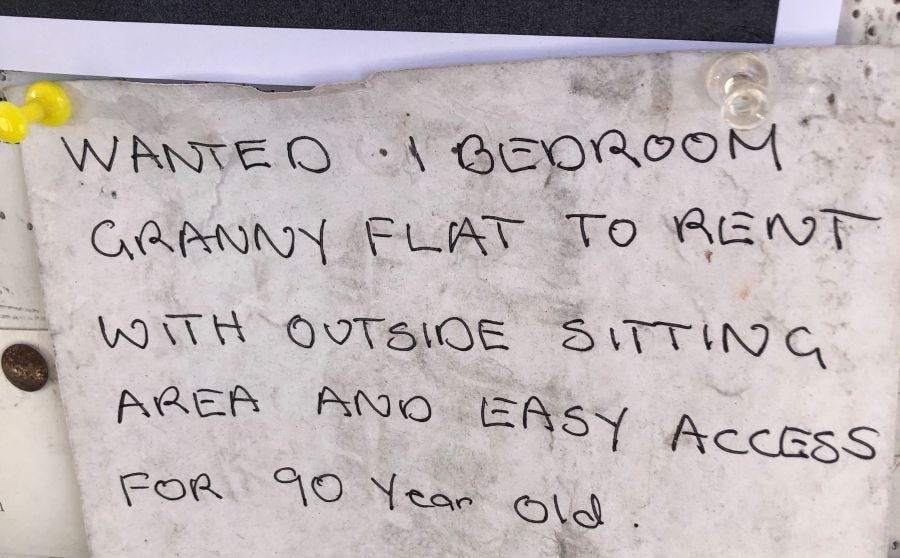 WANTED · 1 BEDROOM
GRANNY FLAT TO RENT
WITH OUTSIDE SITTING
AREA AND EASY ACCESS
FOR 90 Year Old.